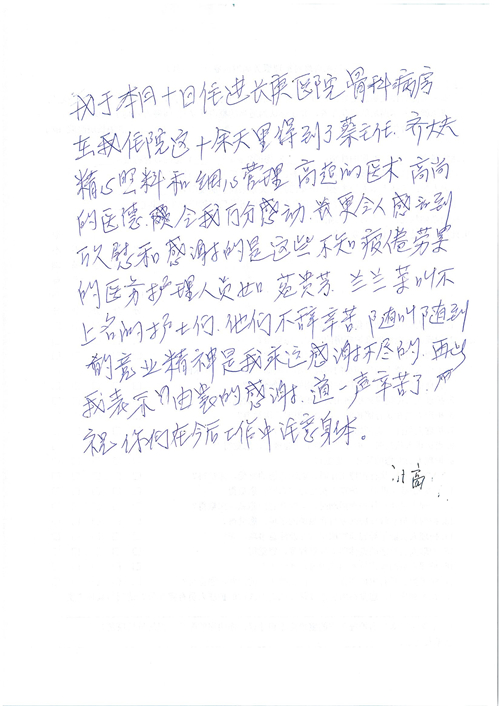 我于本月十日住进长庚医院骨科病房
在我住院这十余天里得到了蔡主任.齐大夫
精心照料和细心管理 高超的医术 高尚
的医德.令我万分感动.更令人感到
欣慰和感谢的是这些不知疲倦劳累
的医务护理人员如 苑贵芳 兰兰等叫不
上名的护士们.他们不辞辛苦.随叫随到
的意业精神是我永远感谢不尽的.再次
我表示由衷的感谢.道一声辛苦了.
祝你们在今后工作中注意身体。
高